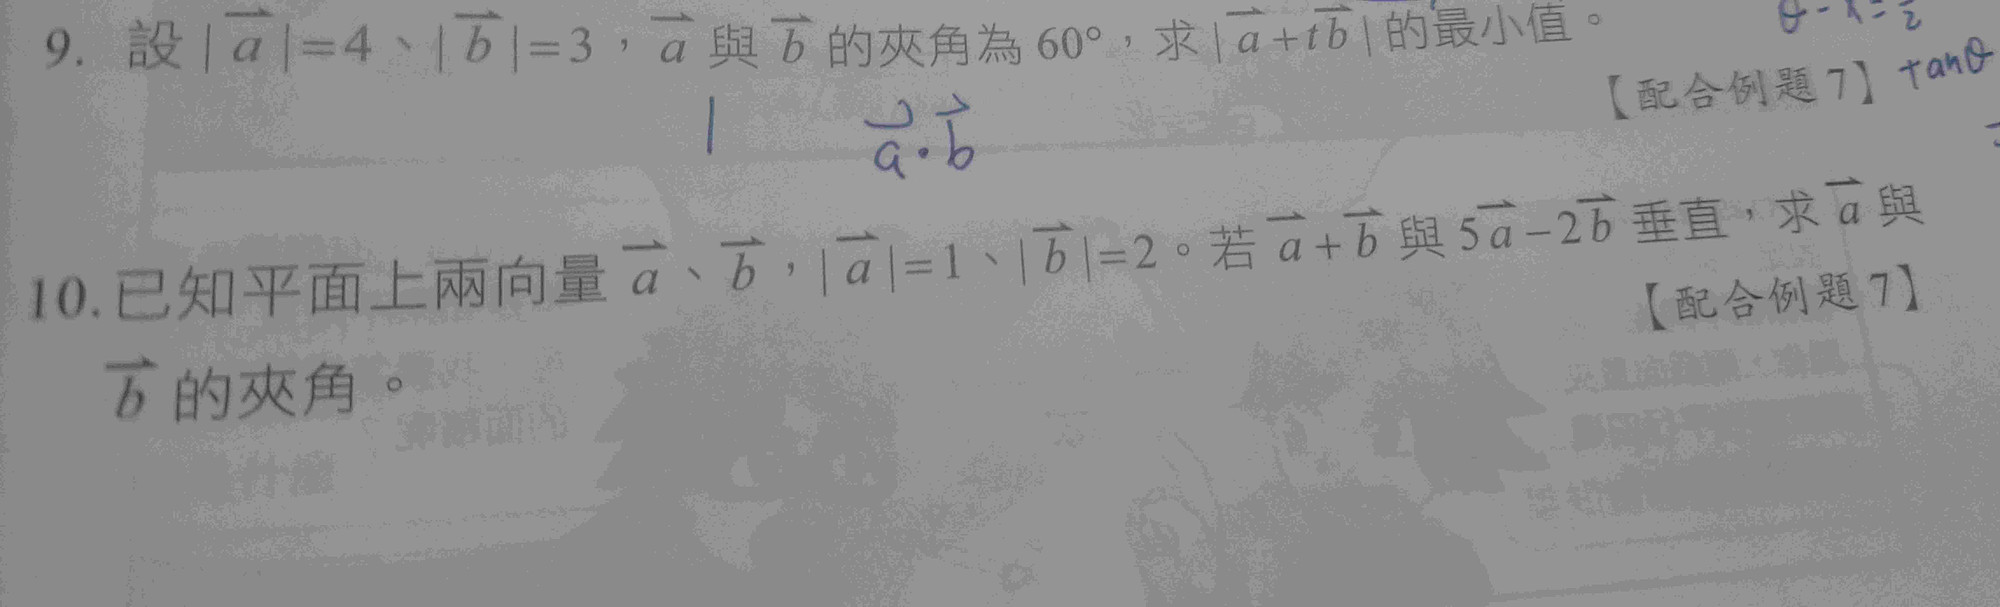 9. 設|a|=4、|b|=3，a與b的夾角為60°，求|a+tb|的最小值。
【配合例題7】
a·b
10.已知平面上兩向量a、b，|a|=1、|b|=2。若a+b與5a-2b垂直，求a與
【配合例題7】
b的夾角。
tanθ